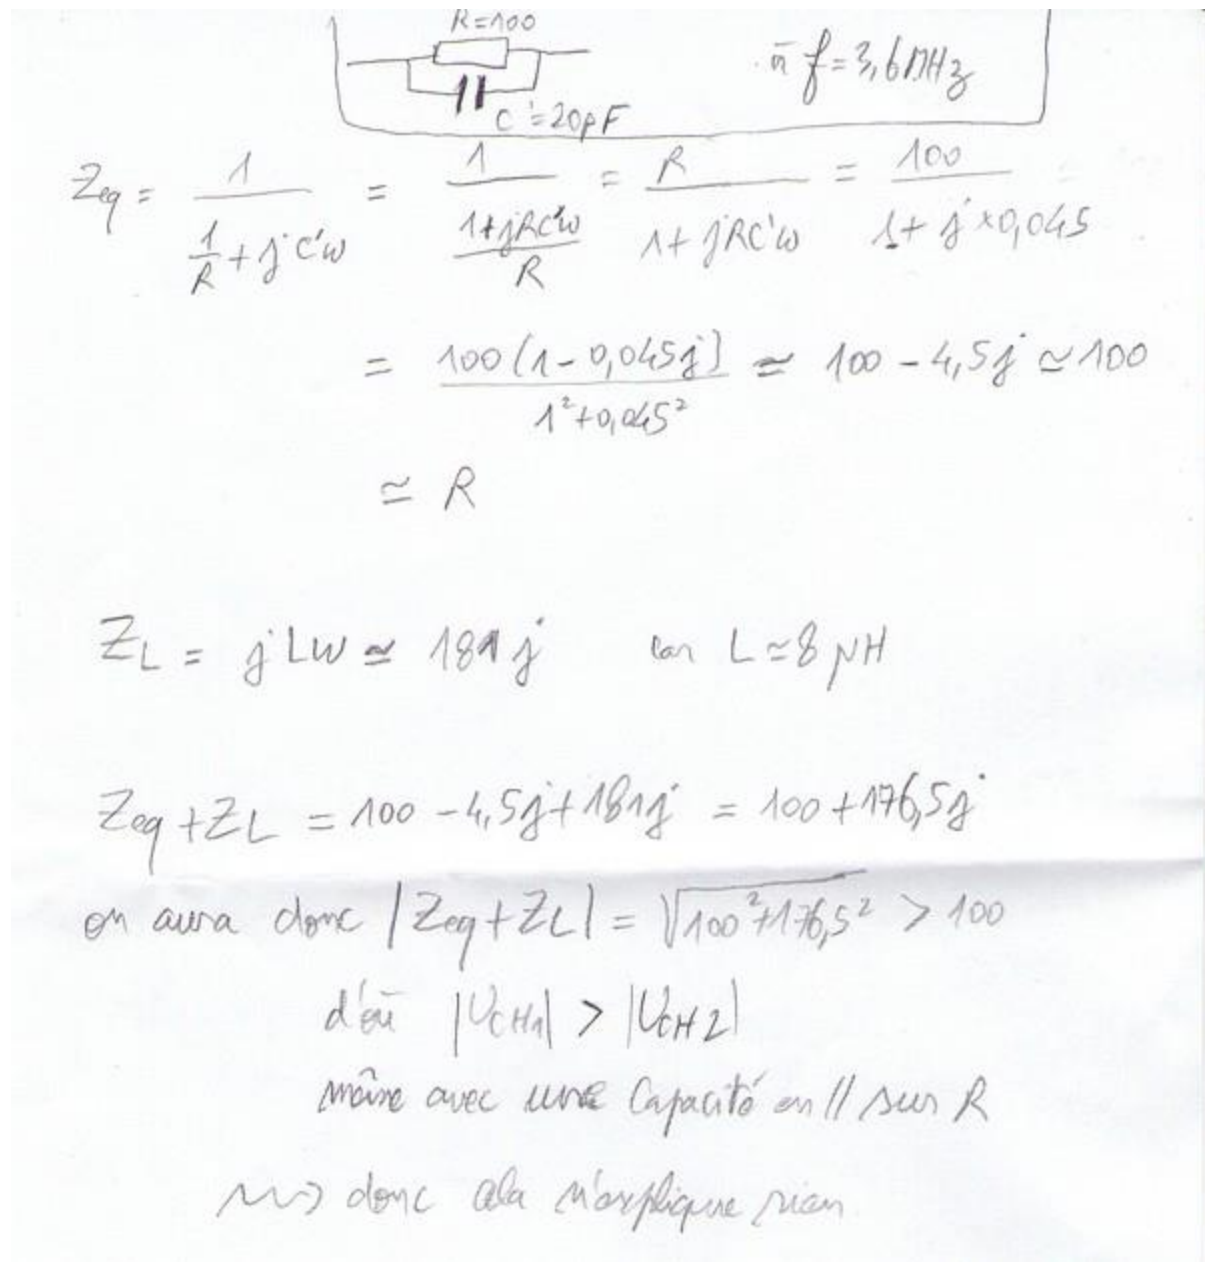 R=100
C'=20pF
f=3,6MHz
Zeq = 1 / (1/R + jC'ω) = 1 / ((1+jRC'ω)/R) = R / (1+jRC'ω) = 100 / (1+j×0,045)
= 100(1-0,045j) / (1²+0,045²) ≃ 100-4,5j ≃ 100
≃ R
ZL = jLω ≃ 181j car L≃8µH
Zeq+ZL = 100-4,5j+181j = 100+176,5j
on aura donc |Zeq+ZL| = √(100²+176,5²) > 100
d'où |UCH1| > |UCH2|
même avec une Capacité en // sur R
donc cela n'explique rien